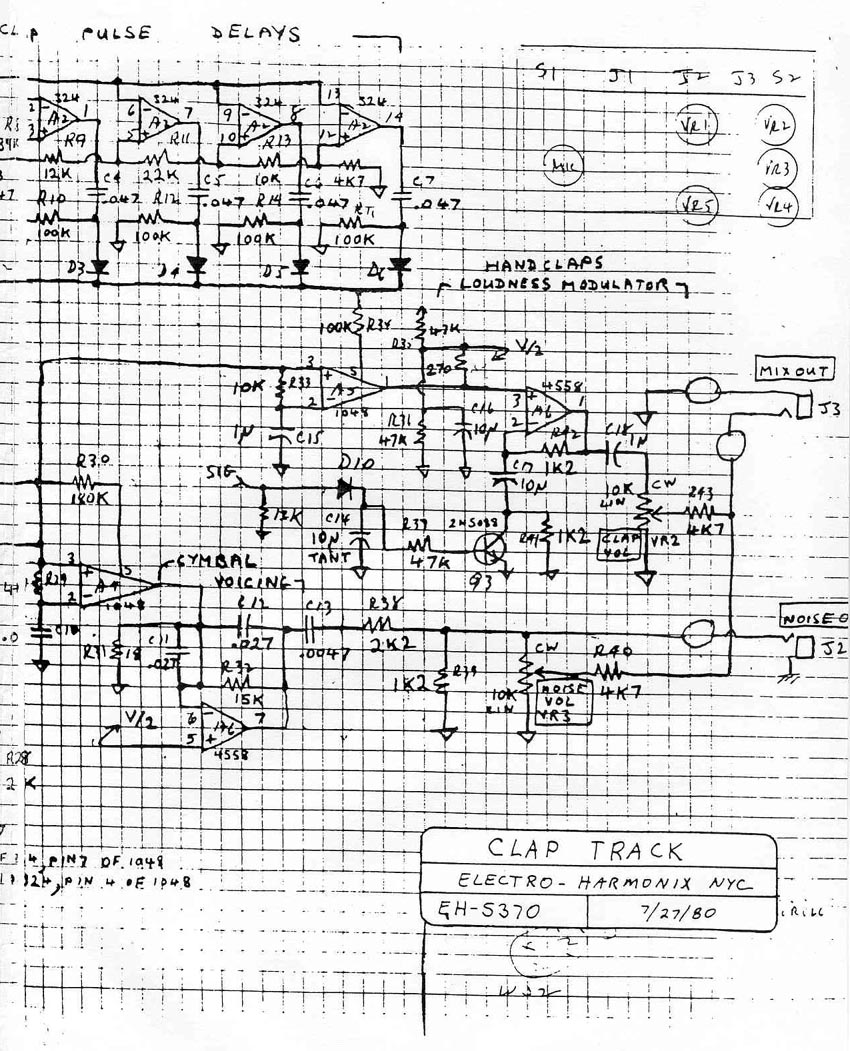 CLAP PULSE DELAYS
S1 J1 J2 J3 S2
VR1 VR2
MIC VR3
VR5 VR4
2 324 1 6 324 7 9 324 8 13 324 14
3 A2 5 A2 10 A2 12
R9 R11 R13
12K 22K 10K 4K7
C4 C5 C6 C7
.047 .047 .047 .047
R10 R12 R14
100K 100K 100K 100K
D3 D4 D5 D6
HANDCLAPS
LOUDNESS MODULATOR
100K R34 43K
V/2
270
3 5 4558
10K R33 A5 3 A6 1
2 1048 2
1µ C15 R31 47K C16 10µ
R42 1K2 C18 1µ
C17 10µ
MIX OUT
J3
SIG D10
R30
180K
12K C14 10µ TANT
R37 47K
2N5088
Q3
R41 1K2
10K LIN CW
CLAP VOL VR2
R43 4K7
CYMBAL
VOICING
3 5
R29 A4
2 1048
C12 .027
C13 .0047
R38 2K2
C11 .027
R32 15K
1K2 R39
CW
10K LIN
NOISE VOL VR3
R40 4K7
NOISE O
J2
V/2
6 A6 7
5 4558
R28
2K
4, PIN 7 OF 1048
324, PIN 4 OF 1048
CLAP TRACK
ELECTRO-HARMONIX NYC
EH-5370 7/27/80